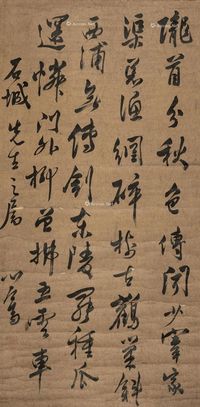 隴首分秋色傳聞少宰家
渠荒漁網碎樹古鶴巢斜
西浦傳劍東陵種瓜
還憐門外柳曾拂五雲車
石城先生之屬 心畬